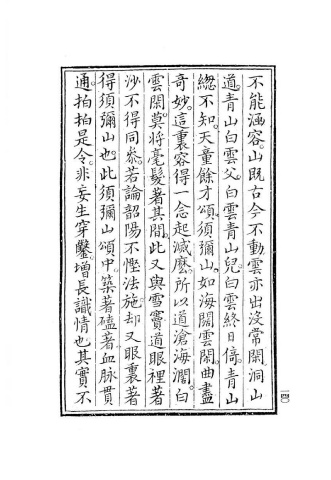 不能涵容山既古今不動雲亦出沒常閑洞山
道青山白雲父白雲青山兒白雲終日倚青山
緫不知天童餘才頌須彌山如海闊雲閑曲盡
奇妙這裏容得一念起滅麽所以道滄海濶白
雲閑莫將毫髮著其間此又與雪竇道眼裡著
沙不得同叅若論韶陽不慳法施却又眼裏著
得須彌山也此須彌山頌中築著磕著血脉貫
通拍拍是令非妄生穿鑿增長識情也其實不
一四〇